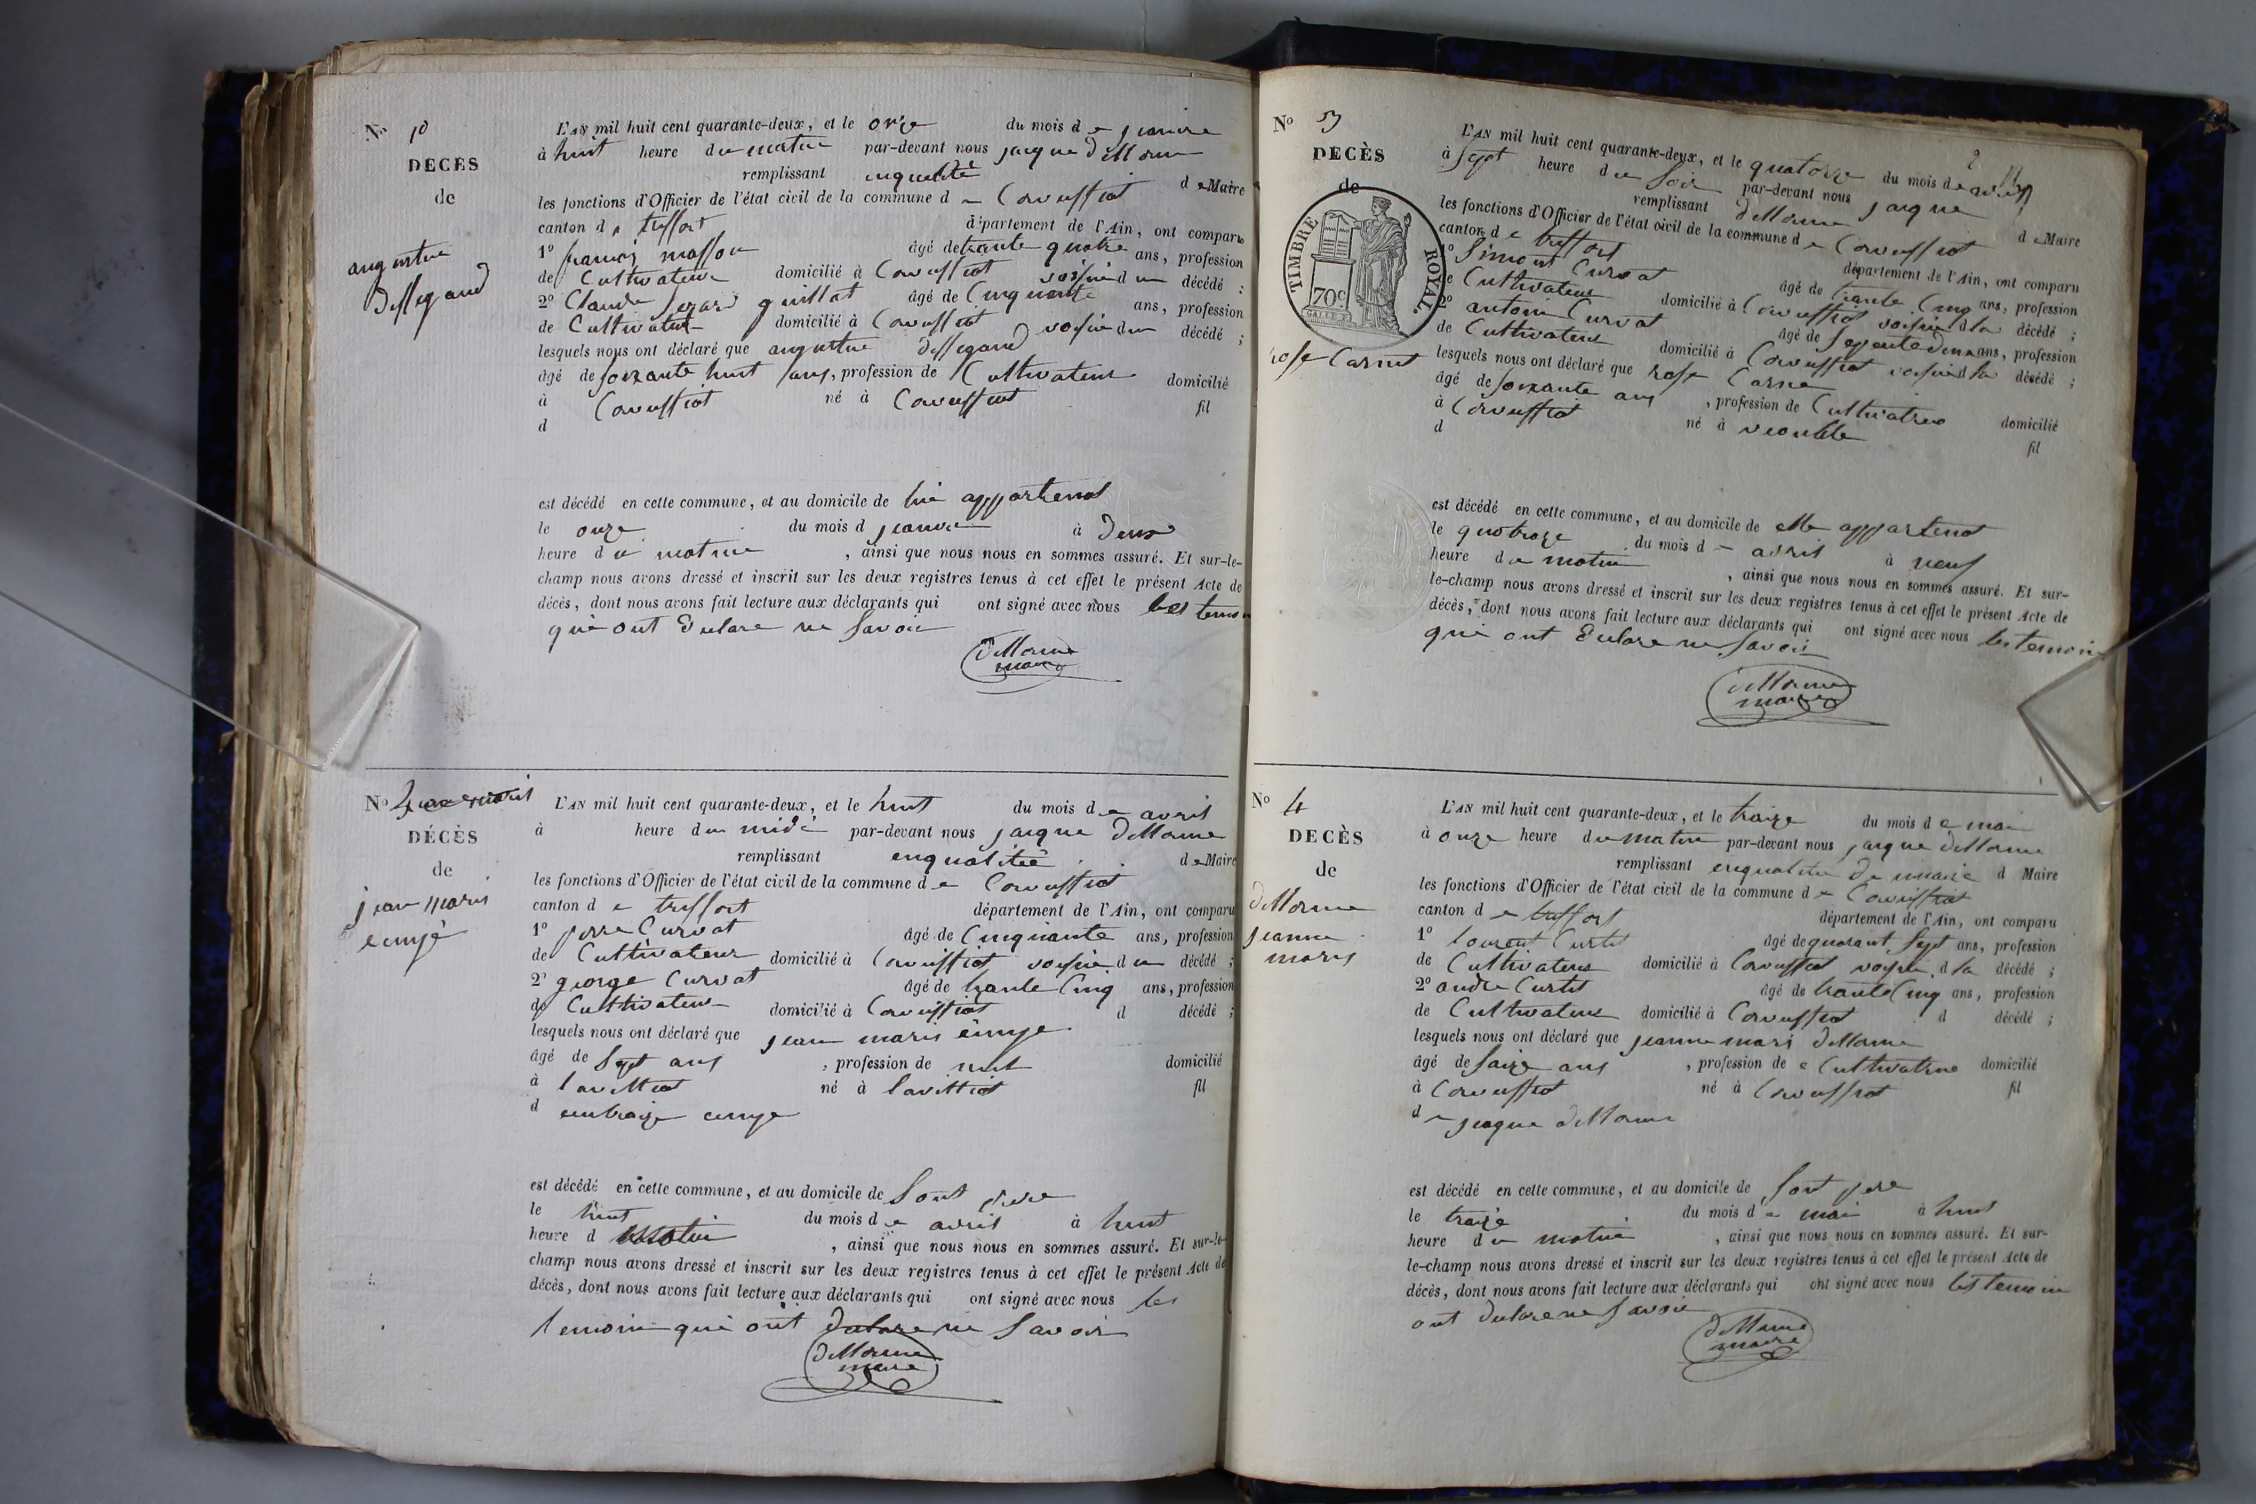 DECÈS
de
augustin
Dessegaud
L'AN mil huit cent quarante-deux, et le onze du mois de janvie
à huit heure du matin par-devant nous jacque
remplissant enqualité de Maire
les fonctions d'Officier de l'état civil de la commune de Corveissiat
canton de treffort département de l'Ain, ont comparu
1° francois masson âgé de trante quatre ans, profession
de Cultivateur domicilié à Corveissiat voisin du décédé ;
2° Claude guillat âgé de Cinquante ans, profession
de Cultivateur domicilié à Corveissiat voisin du décédé ;
lesquels nous ont déclaré que augustin Dessegaud
âgé de soixante huit ans, profession de Cultivateur domicilié
à Corveissiat né à Corveissiat fil
d
est décédé en cette commune, et au domicile de lui appartenant
le onze du mois d janvie à deux
heure du matin , ainsi que nous nous en sommes assuré. Et sur-le-
champ nous avons dressé et inscrit sur les deux registres tenus à cet effet le présent Acte de
décès, dont nous avons fait lecture aux déclarants qui ont signé avec nous les temoin
qui ont declare ne savoir
maire
N°
DÉCÈS
de
jean marie
L'AN mil huit cent quarante-deux, et le huit du mois de avril
à heure du midi par-devant nous jacque
remplissant enqualité de Maire
les fonctions d'Officier de l'état civil de la commune de Corveissiat
canton de treffort département de l'Ain, ont comparu
1° pierre Curvat âgé de Cinquante ans, profession
de Cultivateur domicilié à Corveissiat voisin du décédé ;
2° george Curvat âgé de trante Cinq ans, profession
de Cultivateur domicilié à Corveissiat d décédé ;
lesquels nous ont déclaré que jean marie
âgé de sept ans , profession de domicilié
à né à fil
d
est décédé en cette commune, et au domicile de sont pere
le huit du mois de avril à huit
heure d matin , ainsi que nous nous en sommes assuré. Et sur-le-
champ nous avons dressé et inscrit sur les deux registres tenus à cet effet le présent Acte de
décès, dont nous avons fait lecture aux déclarants qui ont signé avec nous les
temoin qui ont declare ne savoir
maire
N° 3
DECÈS
de
TIMBRE ROYAL.
70c
rose Carne
L'AN mil huit cent quarante-deux, et le quatorze du mois de avril
à sept heure du soir par-devant nous jacque
remplissant
les fonctions d'Officier de l'état civil de la commune de Corveissiat de Maire
canton de treffort département de l'Ain, ont comparu
1° Simont Curvat âgé de trante Cinq ans, profession
de Cultivateur domicilié à Corveissiat voisin d la décédé ;
2° antoine Curvat âgé de ans, profession
de Cultivateur domicilié à Corveissiat voisin d la décédé ;
lesquels nous ont déclaré que rose Carne
âgé de soixante ans , profession de Cultivatrice domicilié
à Corveissiat né à fil
d
est décédé en cette commune, et au domicile de elle appartenant
le quatorze du mois de avril à neuf
heure du matin , ainsi que nous nous en sommes assuré. Et sur-
le-champ nous avons dressé et inscrit sur les deux registres tenus à cet effet le présent Acte de
décès, dont nous avons fait lecture aux déclarants qui ont signé avec nous les temoin
qui ont declare ne savoir
maire
N° 4
DECÈS
de
jeanne
marie
L'AN mil huit cent quarante-deux, et le traize du mois de mai
à onze heure du matin par-devant nous jacque
remplissant enqualité de maire d Maire
les fonctions d'Officier de l'état civil de la commune de Corveissiat
canton de treffort département de l'Ain, ont comparu
1° laurent Curtet âgé de quarant sept ans, profession
de Cultivateur domicilié à Corveissiat voisin d la décédé ;
2° andre Curtet âgé de trante Cinq ans, profession
de Cultivateur domicilié à Corveissiat d décédé ;
lesquels nous ont déclaré que jeanne marie
âgé de saize ans , profession de Cultivatrice domicilié
à Corveissiat né à Corveissiat fil
de jacque
est décédé en cette commune, et au domicile de sont pere
le traize du mois de mai à huit
heure du matin , ainsi que nous nous en sommes assuré. Et sur-
le-champ nous avons dressé et inscrit sur les deux registres tenus à cet effet le présent Acte de
décès, dont nous avons fait lecture aux déclarants qui ont signé avec nous les temoin
ont declare ne savoir
maire